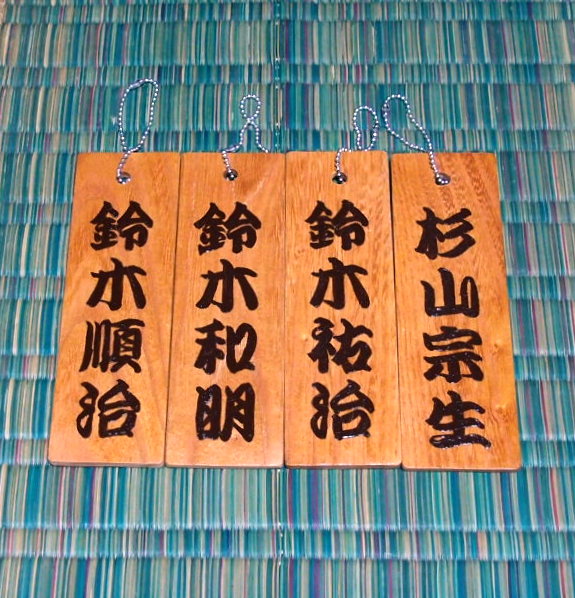 鈴木順治
鈴木和明
鈴木祐治
杉山宗生